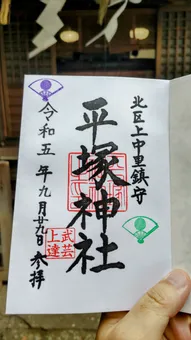 北区上中里鎮守
平塚神社
武芸
上達
令和五年九月廿九日参拝